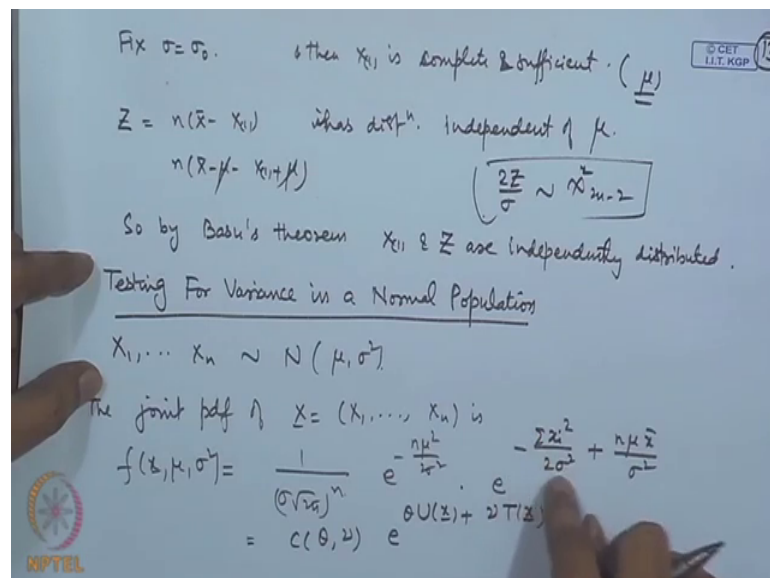 Fix σ = σ₀. then X₍₁₎ is complete & sufficient. (μ)
© CET
I.I.T. KGP
Z = n(x̄ - X₍₁₎) has distⁿ. independent of μ.
n(x̄-μ - X₍₁₎+μ)
2Z/σ ~ χ²₂ₙ₋₂
So by Basu's theorem X₍₁₎ & Z are independently distributed.
Testing For Variance in a Normal Population
X₁, ... Xₙ ~ N(μ, σ²)
The joint pdf of X = (X₁, ..., Xₙ) is
f(x, μ, σ²) = 1/(σ√2π)ⁿ e^(-nμ²/2σ²) . e^(-Σxᵢ²/2σ² + nμx̄/σ²)
= c(θ, ν) e^(θU(x) + νT(x))
NPTEL